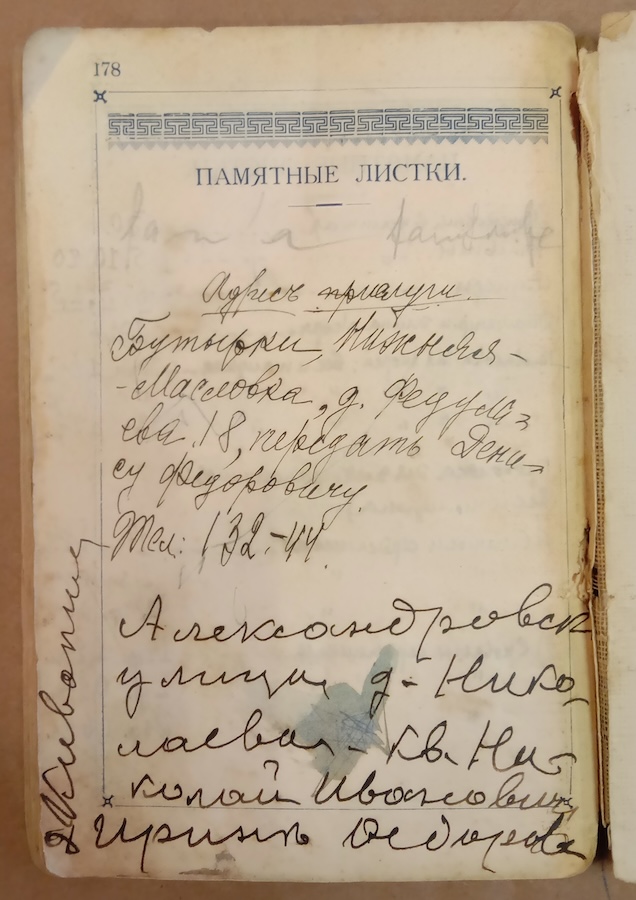 178
ПАМЯТНЫЕ ЛИСТКИ.
Адресъ прислуги.
Бутырки, Нижняя-
-Масловка, д. Федула-
ева 18, передать Дени-
су Федоровичу.
Тел: 132-44.
Александровск
улица, д- Нико-
лаева, - кв. Ни-
колай Иванович
Ирине Федоров